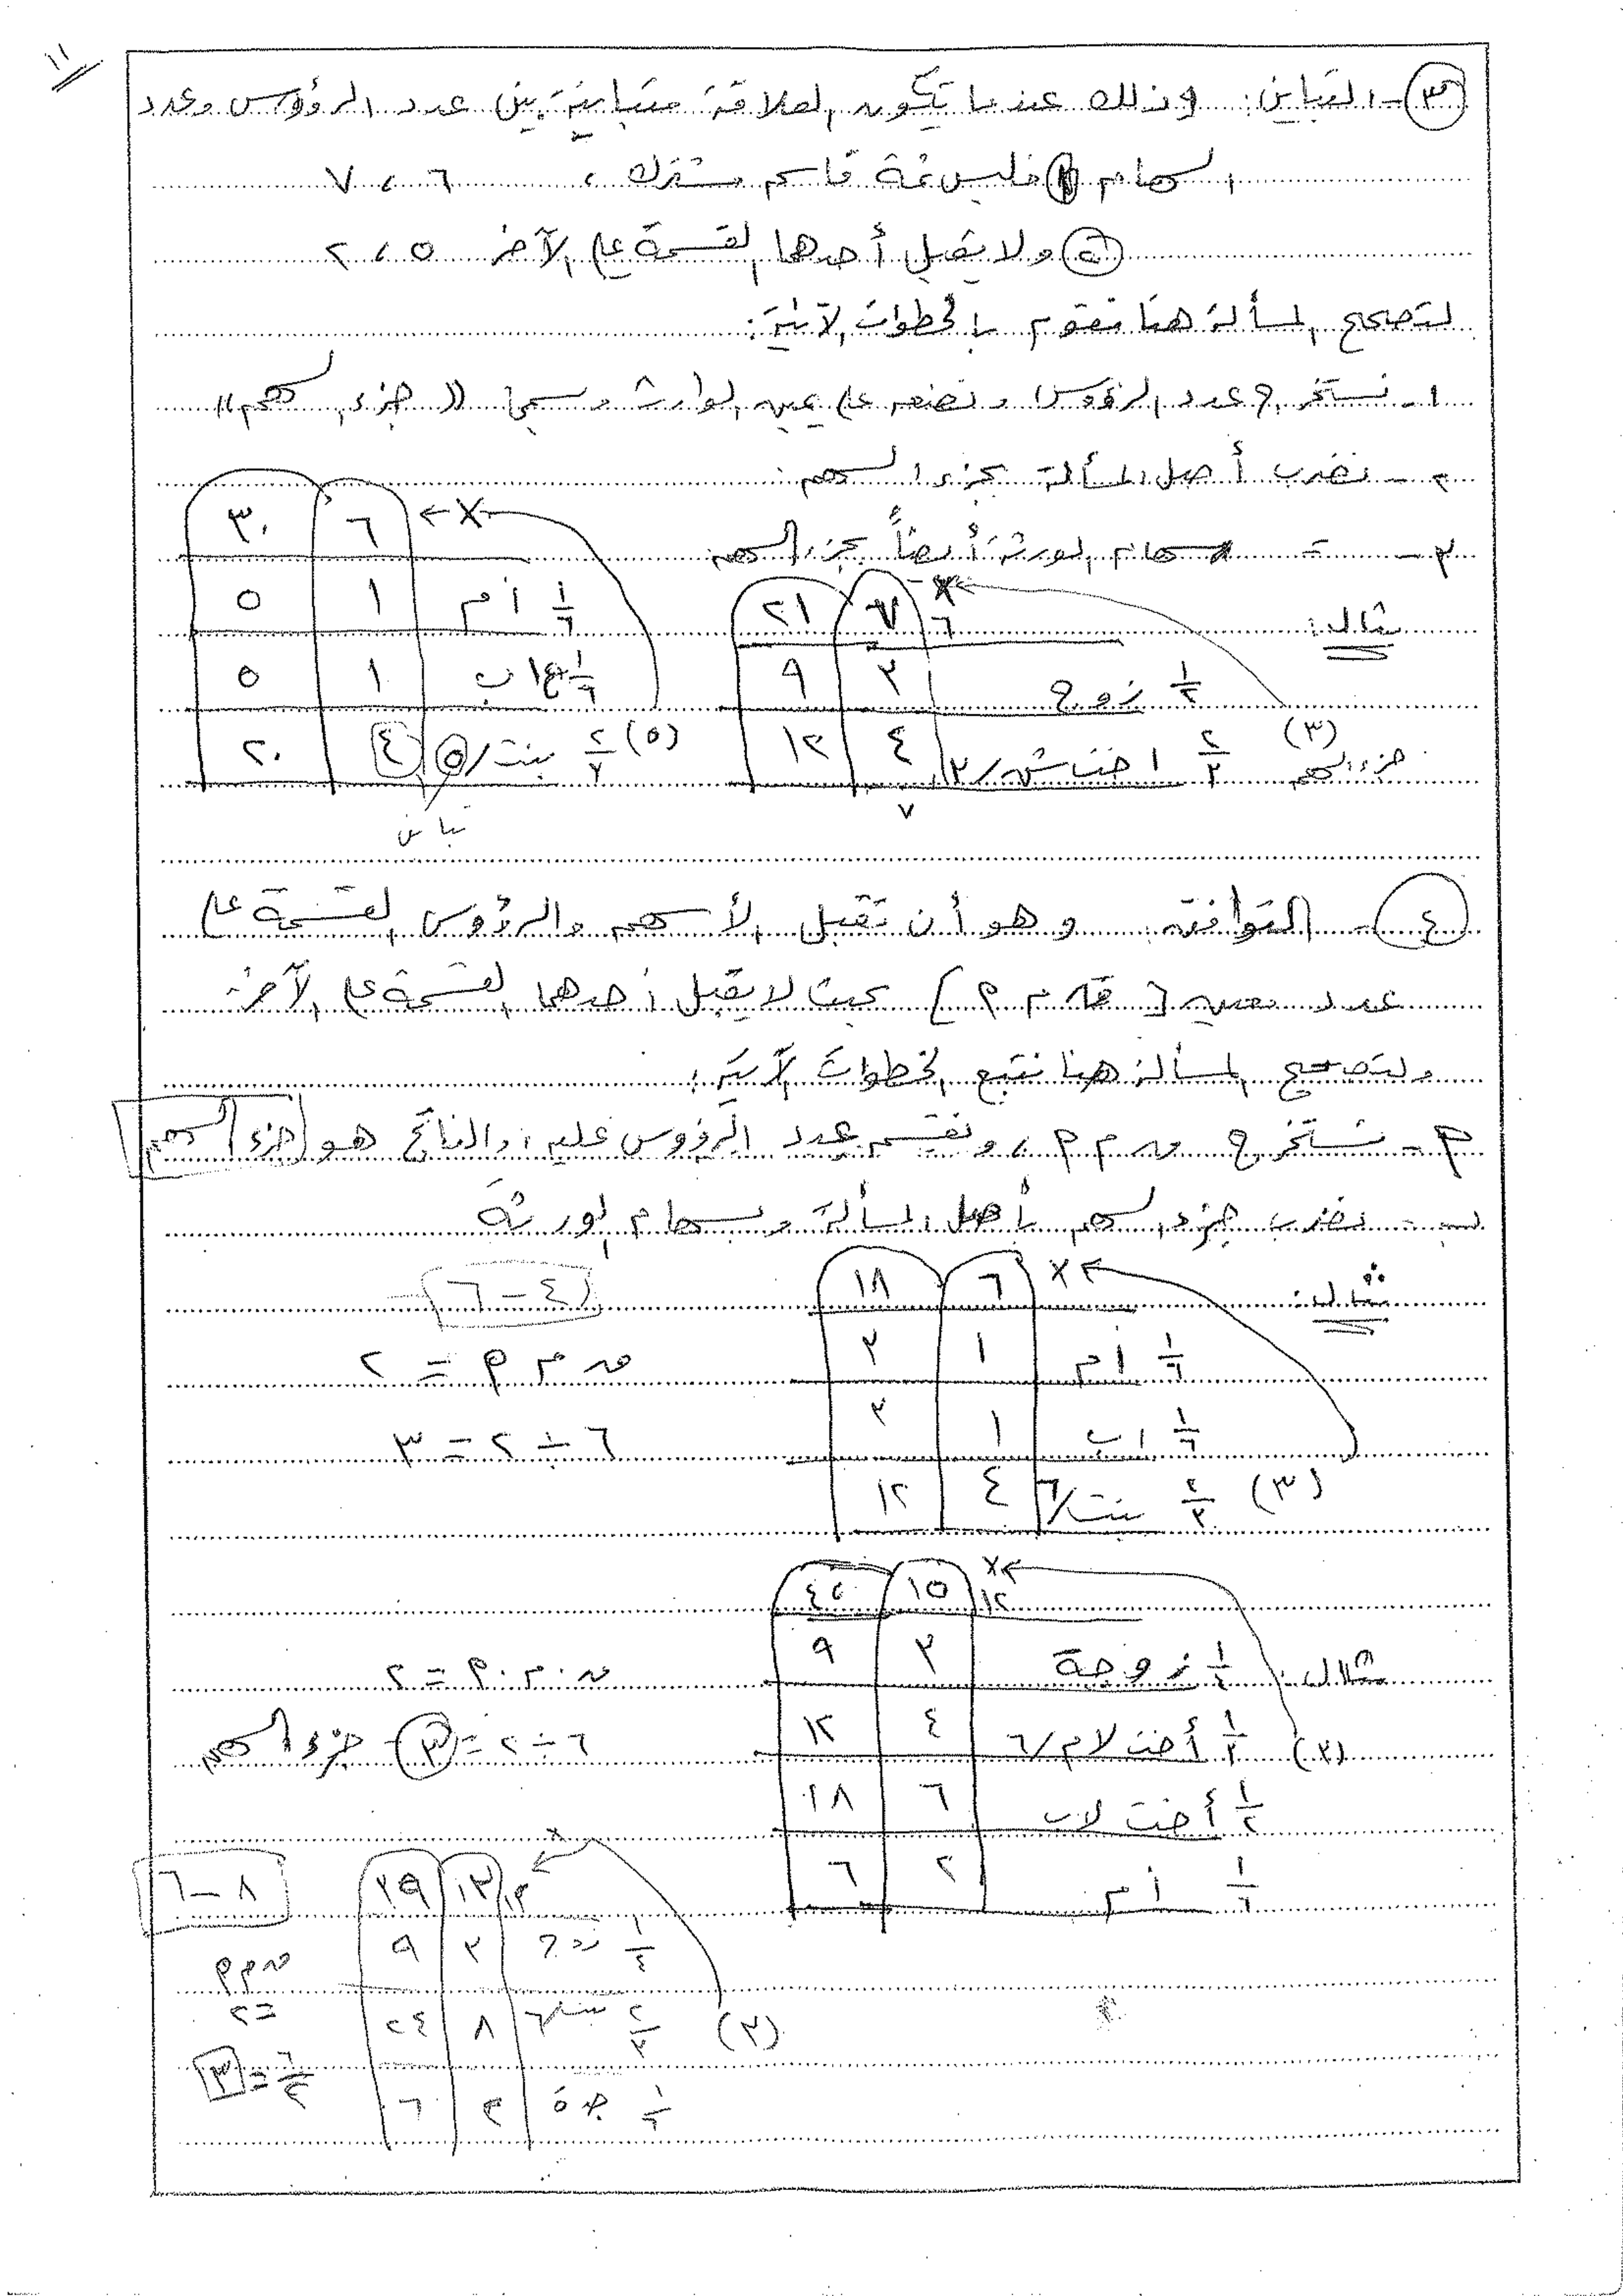 ١١
٣- التباين: وذلك عندما تكون العلاقة متباينة بين عدد الرؤوس وعدد
السهام فليس ثمة قاسم مشترك ، ٦ ، ٧
ولا يقبل أحدها القسمة على الآخر ٥ ، ٢
لتصحيح المسألة هنا نقوم بالخطوات الآتية:
١- نستخرج عدد الرؤوس ونضعه على يمين الوارث ويسمى ((جزء السهم))
٢- نضرب أصل المسألة بجزء السهم
٣- = سهام الورثة أيضاً بجزء السهم
× ٦ ٣٠
١/٦ أم ١ ٥
١/٦ أب ١ ٥
(٥) ٢/٣ بنت/٥ ٤ ٢٠
تباين
مثال:
× ٦ ٧ ٢١
١/٢ زوج ٣ ٩
(٣) ٢/٣ أخت ش/٣ ٤ ١٢
جزء السهم
٧
٤- التوافق وهو أن تقبل الأسهم والرؤوس القسمة على
عدد معين [ق م م] بحيث لا يقبل أحدهما القسمة على الآخر
ولتصحيح المسألة هنا نتبع الخطوات الآتية:
٢- نستخرج ق م م ، ونقسم عدد الرؤوس عليه ، والناتج هو جزء السهم
ب- نضرب جزء السهم بأصل المسألة وبسهام الورثة
مثال:
× ٦ ١٨
١/٦ أم ١ ٣
١/٦ أب ١ ٣
(٣) ٢/٣ بنت/٦ ٤ ١٢
٤ - ٦
ق م م = ٢
٦ ÷ ٢ = ٣
مثال:
× ١٢ ١٥ ٤٥
١/٤ زوجة ٣ ٩
(٣) ١/٣ أخت لام/٦ ٤ ١٢
١/٢ أخت لاب ٦ ١٨
١/٦ أم ٢ ٦
ق.م.م = ٢
٦ ÷ ٢ = ٣ جزء السهم
× ١٢ ١٣ ٣٩
١/٤ زوج ٣ ٩
(٣) ٢/٣ بنت/٦ ٨ ٢٤
١/٦ جدة ٢ ٦
٨ - ٦
ق م م
= ٢
٦/٢ = ٣